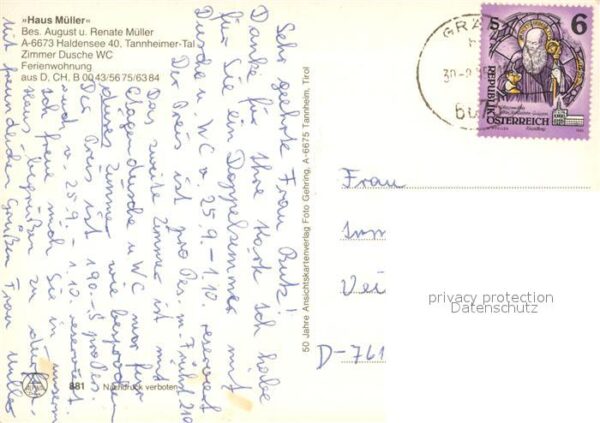 »Haus Müller«
Bes. August u. Renate Müller
A-6673 Haldensee 40, Tannheimer-Tal
Zimmer Dusche WC
Ferienwohnung
aus D, CH, B 00 43/56 75/63 84
Sehr geehrte Frau Butz!
Danke für Ihre Karte ich habe
für Sie ein Doppelzimmer mit
Dusche u. WC v. 25.9.-1.10. reserviert
Der Preis ist pro Pers. m. Frühst 210
Das zweite Zimmer ist mit
Etagendusche u WC nur für
dieses Zimmer wie besprochen
Der Preis ist 190.-S pro Pers.
auch v. 25.9. - 1.10. reserviert.
Ich freue mich Sie in unserm
Haus begrüßen zu dürfen
mit freundlichen Grüßen Frau Müller
881 Nachdruck verboten
50 Jahre Ansichtskartenverlag Foto Gehring, A-6675 Tannheim, Tirol
6
REPUBLIK
ÖSTERREICH
Frau
D-761
privacy protection
Datenschutz